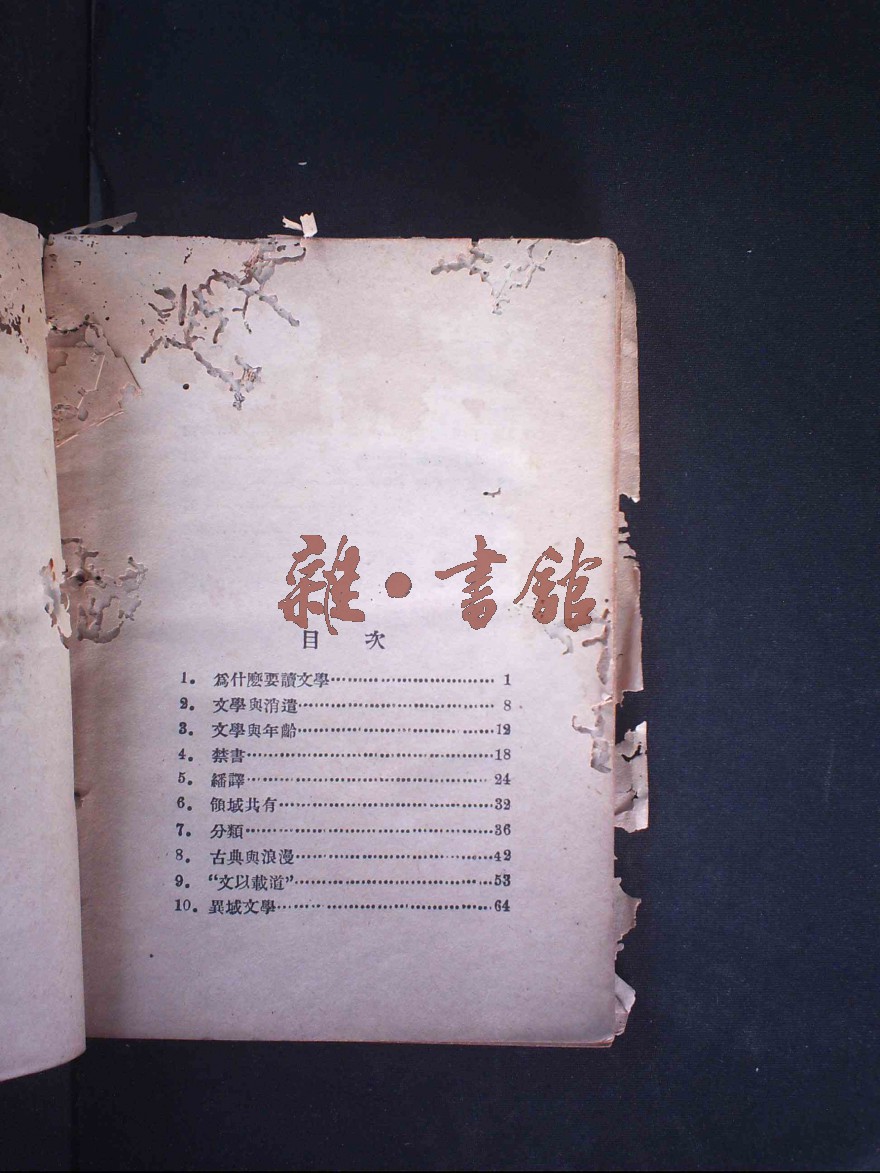 雜·書舘
目 次
1. 爲什麽要讀文學……………………… 1
2. 文學與消遣……………………… 8
3. 文學與年齡……………………… 12
4. 禁書……………………… 18
5. 繙譯……………………… 24
6. 領域共有……………………… 32
7. 分類……………………… 36
8. 古典與浪漫……………………… 42
9. “文以載道”……………………… 53
10. 異域文學……………………… 64